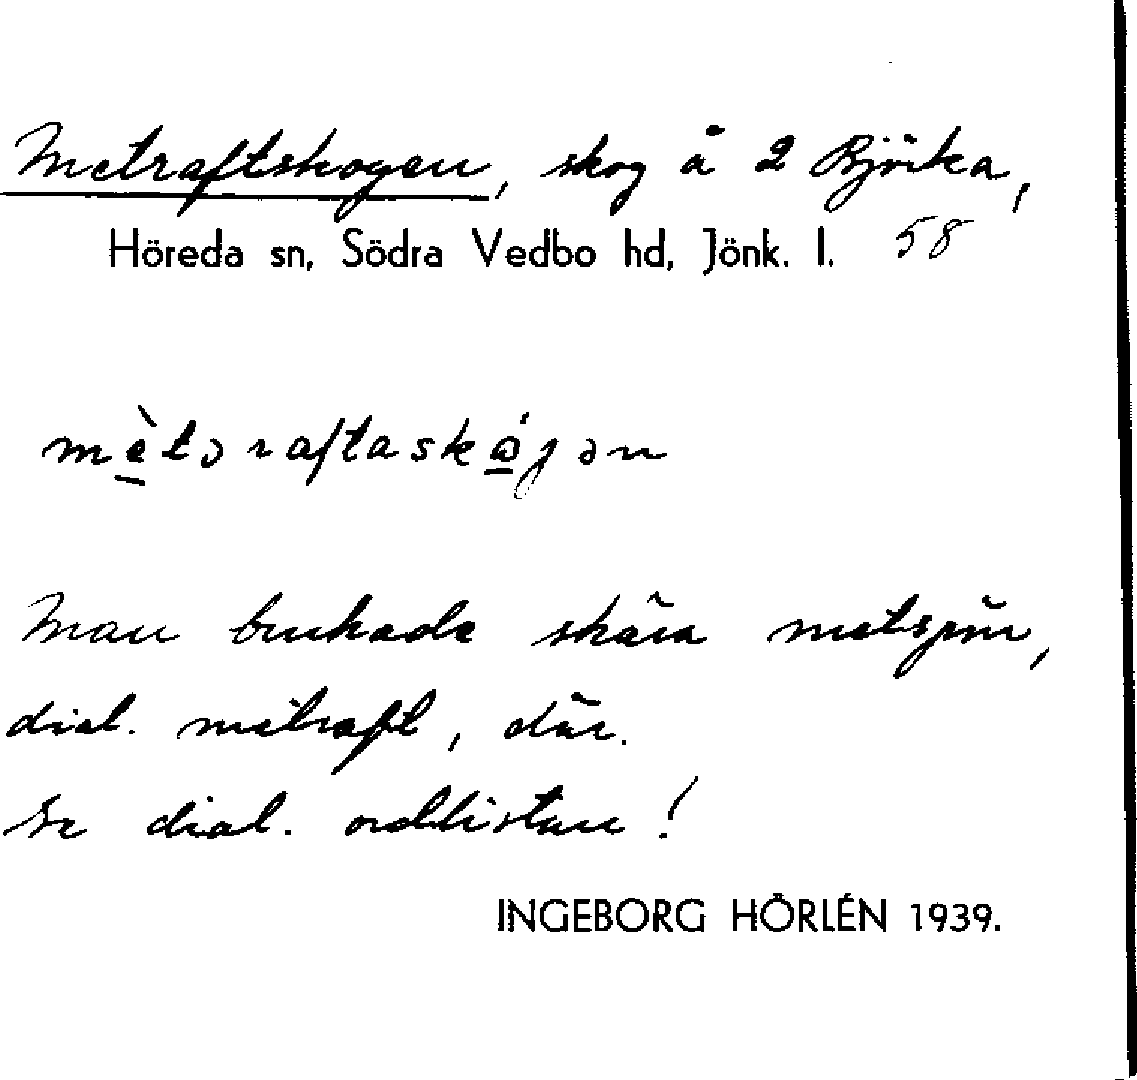 Metraftskogen, skog å 2 Björka,
Höreda sn, Södra Vedbo hd, Jönk. l. 58
Man brukade skära metspön,
dial. metraft, där.
Se dial. ordlistan!
INGEBORG HÖRLÉN 1939.